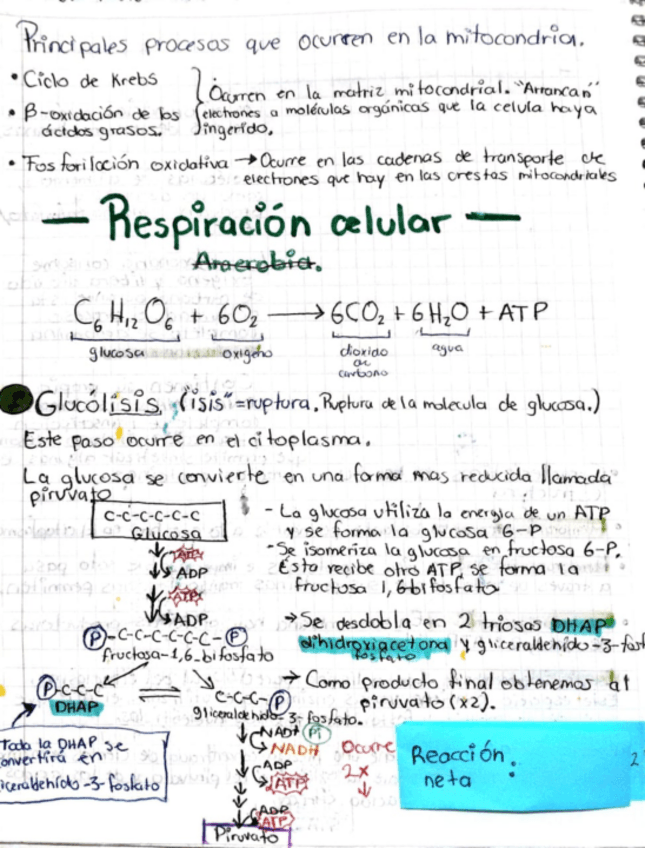 Principales procesos que ocurren en la mitocondria.
• Ciclo de Krebs
• β-oxidación de los ácidos grasos.
Ocurren en la matriz mitocondrial. "Arrancan"
electrones a moléculas orgánicas que la celula haya
ingerido.
• Fosforilación oxidativa → Ocurre en las cadenas de transporte de
electrones que hay en las crestas mitocondriales
— Respiración celular —
Anaerobia.
C6 H12 O6 + 6O2 → 6CO2 + 6H2O + ATP
glucosa oxigeno dioxido de carbono agua
Glucólisis. ("isis"=ruptura. Ruptura de la molecula de glucosa.)
Este paso ocurre en el citoplasma.
La glucosa se convierte en una forma mas reducida llamada
piruvato
C-C-C-C-C-C
Glucosa
ATP
ADP
ATP
ADP
P-C-C-C-C-C-C-P
fructosa-1,6-bifosfato
P-C-C-C
DHAP
C-C-C-P
gliceraldehido-3-fosfato.
Toda la DHAP se
convertirá en
gliceraldehido-3-fosfato
NAD+ Pi
NADH
ADP
ATP
ADP
ATP
Piruvato
Ocurre
2x
- La glucosa utiliza la energia de un ATP
y se forma la glucosa 6-P
- Se isomeriza la glucosa en fructosa 6-P.
Esta recibe otro ATP, se forma la
fructosa 1,6bifosfato
→ Se desdobla en 2 triosas DHAP
dihidroxiacetona fosfato y gliceraldehido-3-fosf
→ Como producto final obtenemos al
piruvato (x2).
Reacción
neta :
2